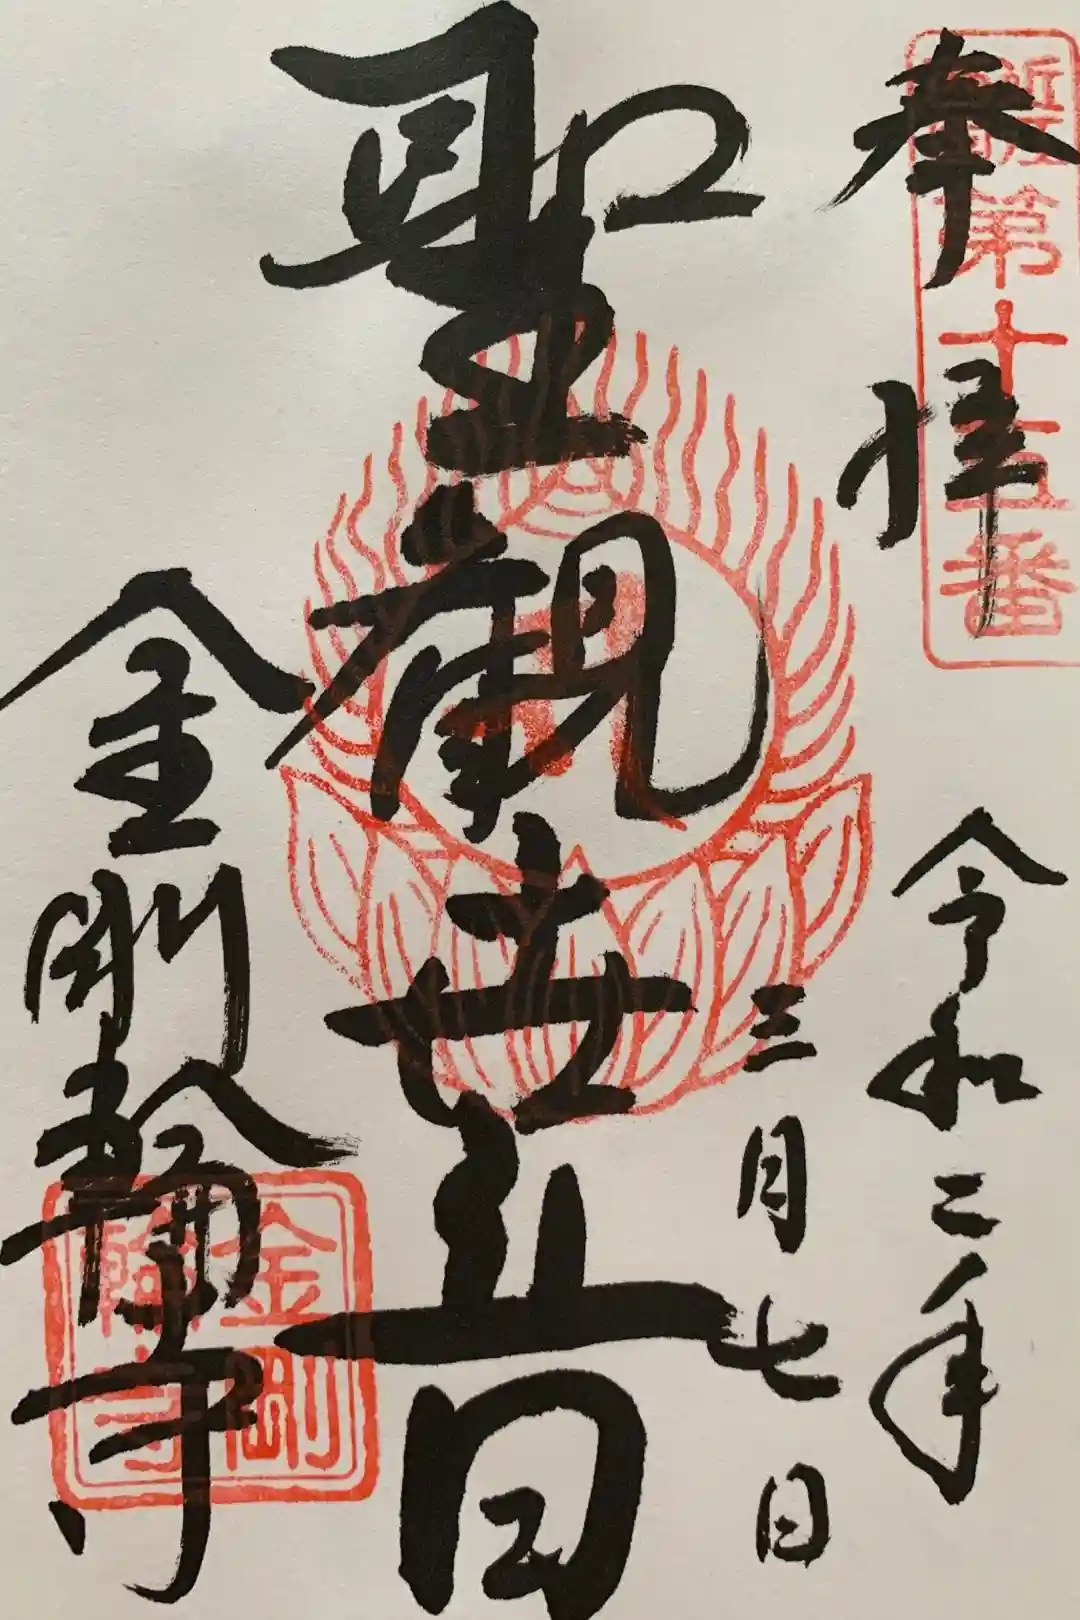 奉拝
近江西国第十五番
令和二年
三月七日
聖観世音
金剛輪寺
金剛輪寺